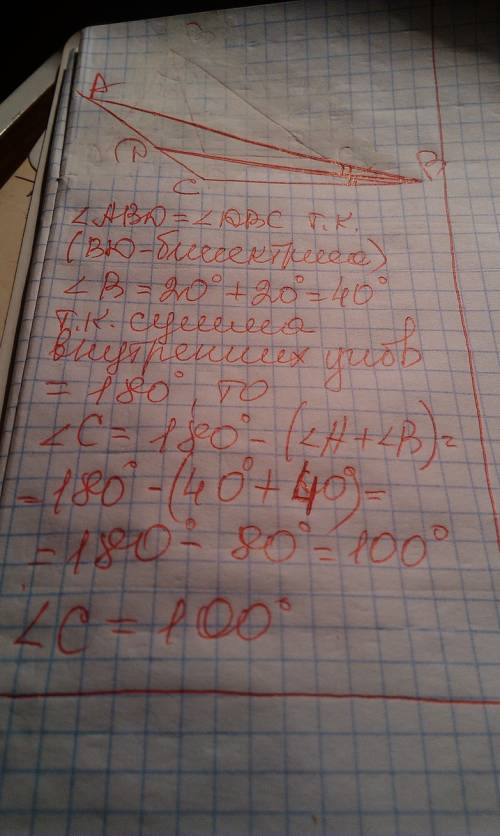 A
D
C
B
∠ABD = ∠DBC т.к.
(BD-биссектриса)
∠B = 20° + 20° = 40°
т.к. сумма
внутренних углов
= 180°, то
∠C = 180° - (∠A + ∠B) =
= 180° - (40° + 40°) =
= 180° - 80° = 100°
∠C = 100°